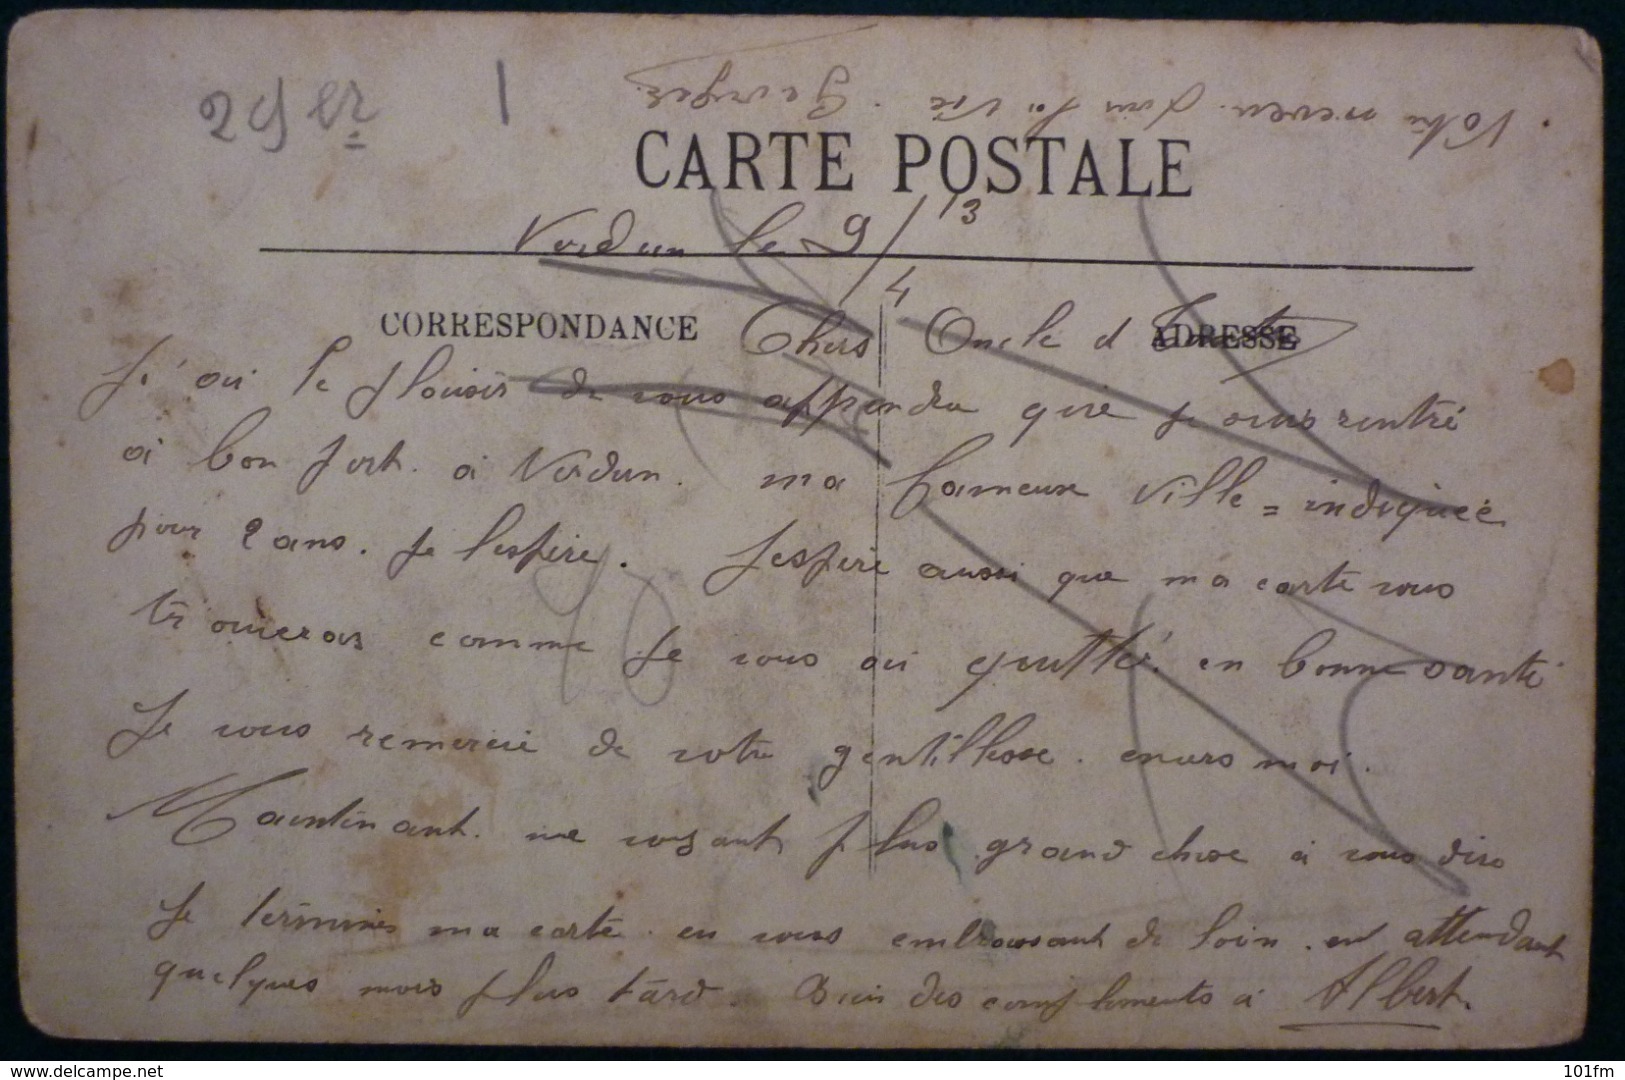 29 er
CARTE POSTALE
Verdun le 9/4 13
CORRESPONDANCE
ADRESSE
Chers Oncle et Tante
J'ai le plaisir de vous apprendre que je suis rentré
à bon port. à Verdun. ma fameuse ville = indiquée
pour 2 ans. je l'espère. J'espère aussi que ma carte vous
trouveras comme je vous ai quitté. en bonne santé
Je vous remercie de votre gentillesse. envers moi.
Maintenant. ne voyant plus grand chose à vous dire
Je termines ma carte. en vous embrassant de loin. en attendant
quelques mois plus tard. Bien des compliments à Albert.
Votre neveu. pour la vie. Georges.
delcampe.net
101fm